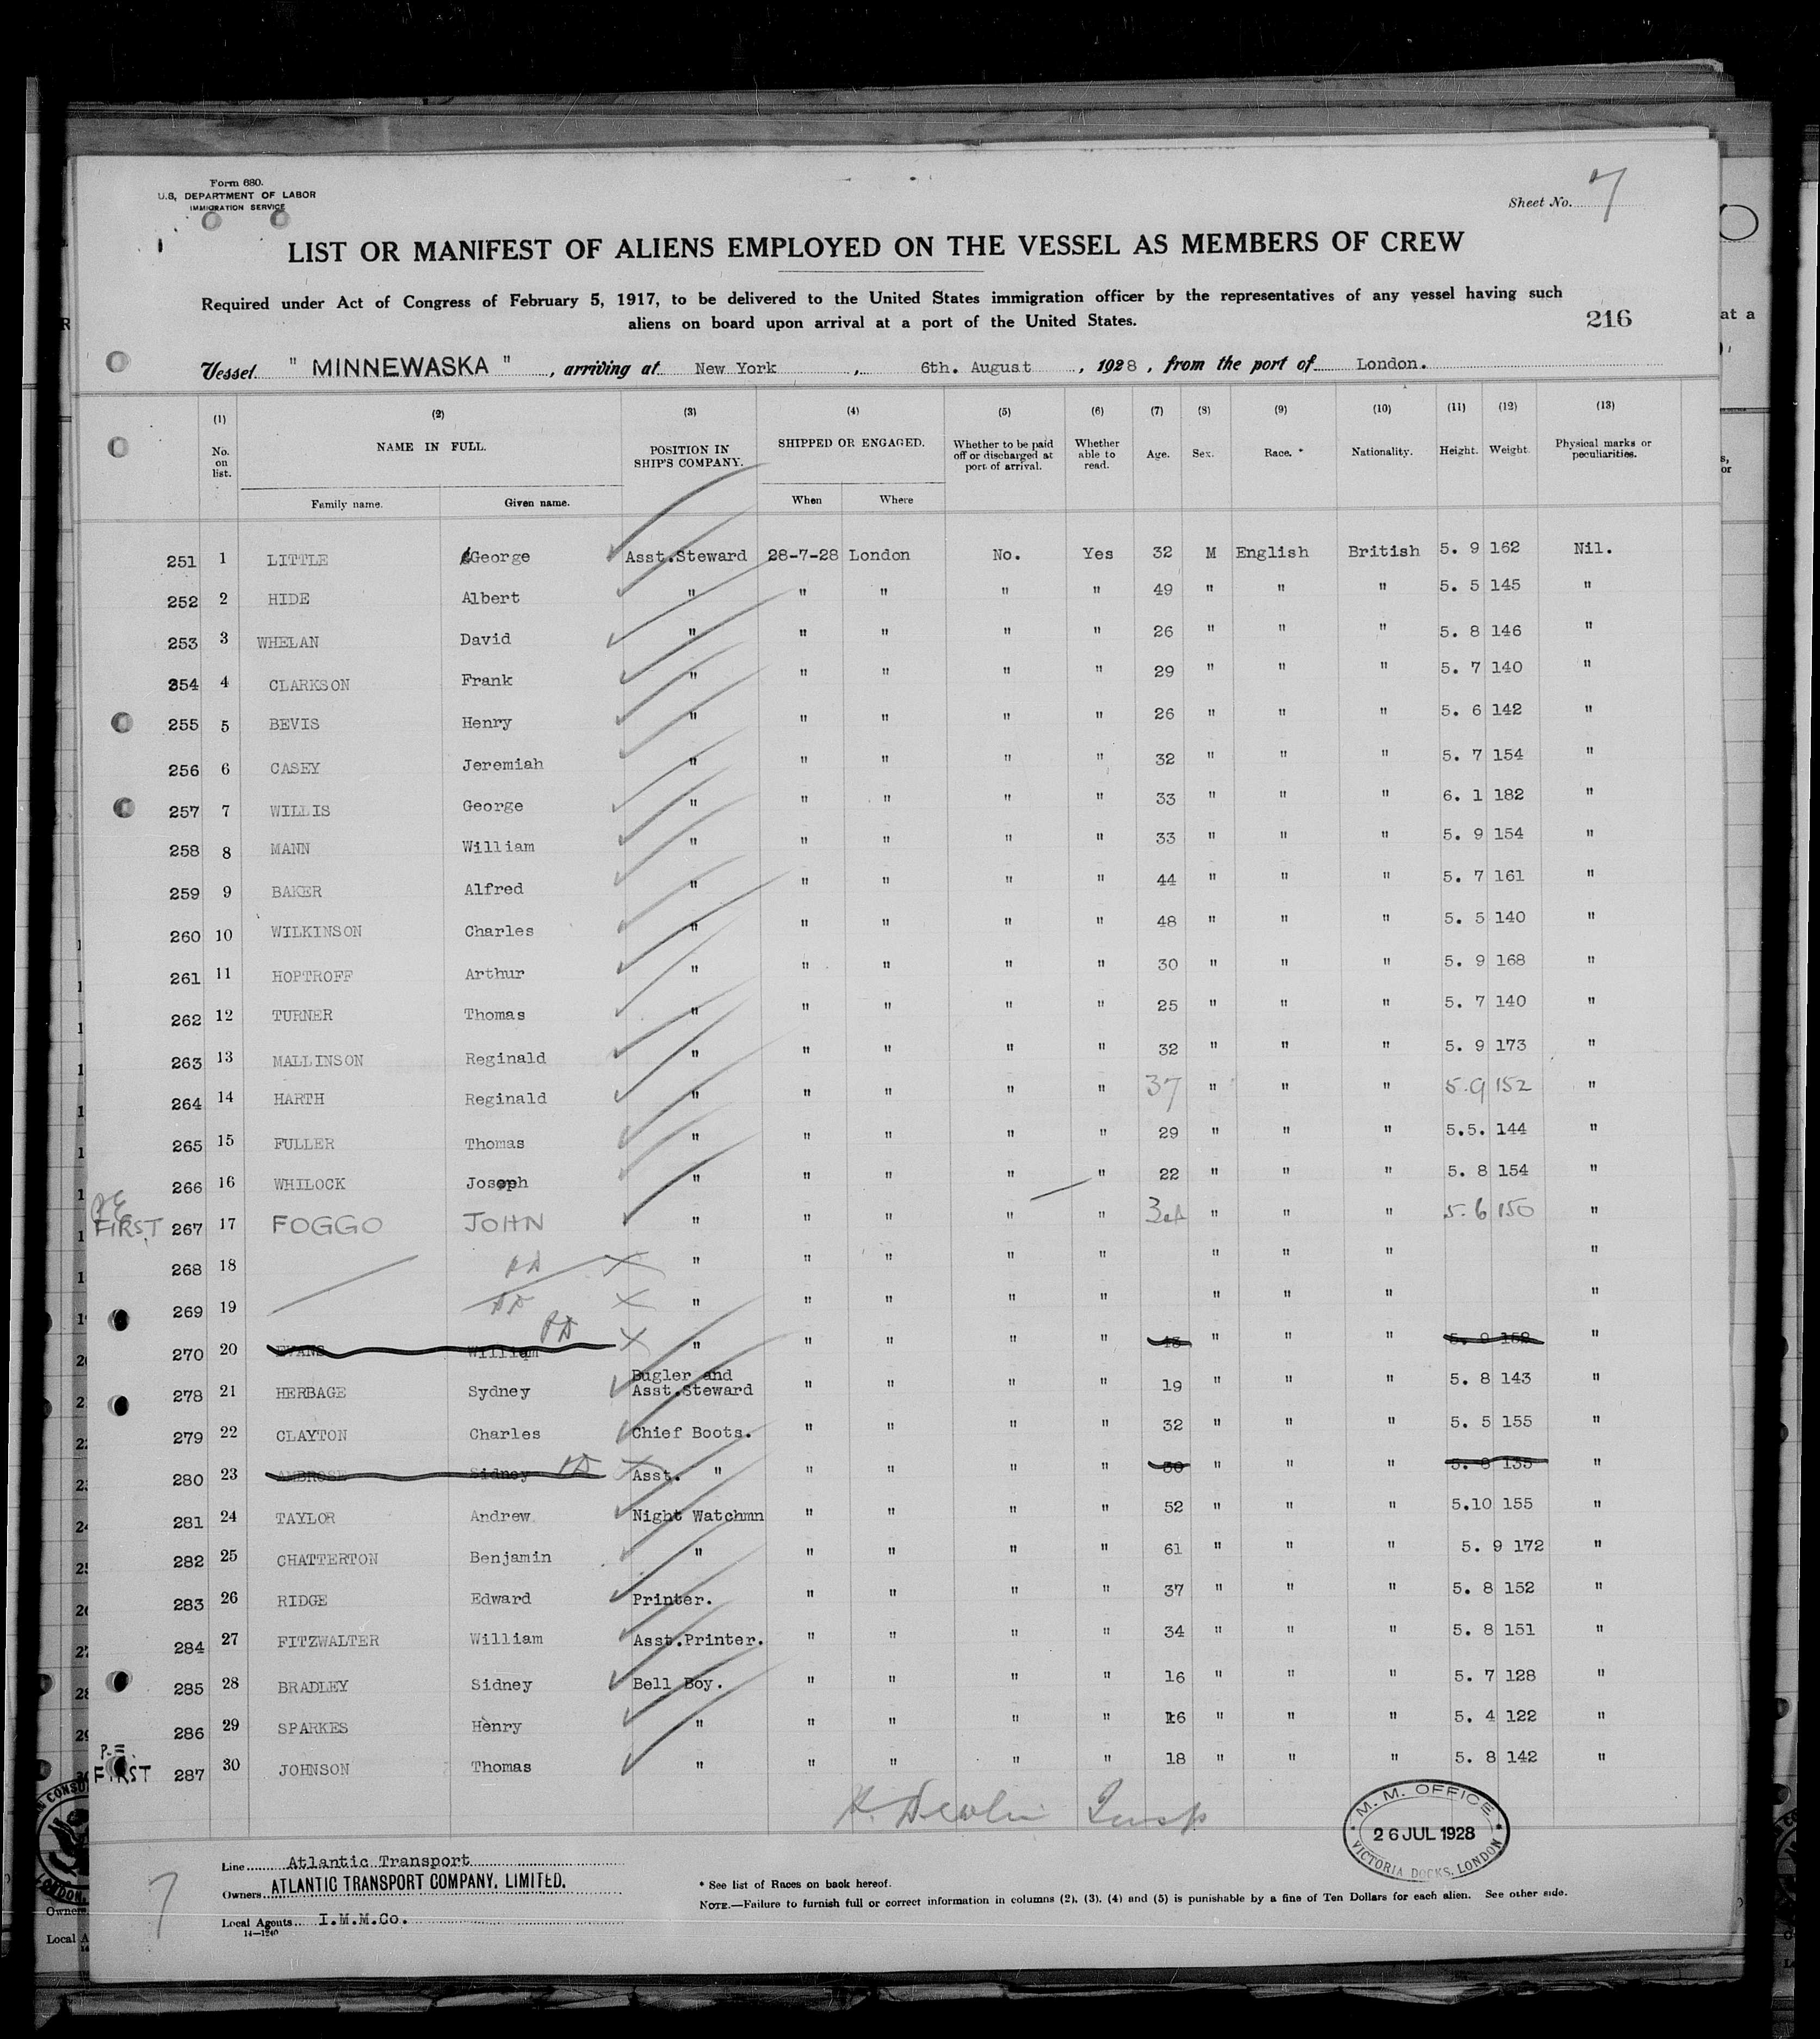 Form 680.
U.S. DEPARTMENT OF LABOR
IMMIGRATION SERVICE
Sheet No. 7
LIST OR MANIFEST OF ALIENS EMPLOYED ON THE VESSEL AS MEMBERS OF CREW
Required under Act of Congress of February 5, 1917, to be delivered to the United States immigration officer by the representatives of any vessel having such
aliens on board upon arrival at a port of the United States.
216
Vessel " MINNEWASKA ", arriving at New York, 6th. August, 1928, from the port of London.
(1) (2) (3) (4) (5) (6) (7) (8) (9) (10) (11) (12) (13)
No. on list. NAME IN FULL. POSITION IN SHIP'S COMPANY. SHIPPED OR ENGAGED. Whether to be paid off or discharged at port of arrival. Whether able to read. Age. Sex. Race. * Nationality. Height. Weight. Physical marks or peculiarities.
Family name. Given name. When Where
251 1 LITTLE George Asst.Steward 28-7-28 London No. Yes 32 M English British 5. 9 162 Nil.
252 2 HIDE Albert " " " " " 49 " " " 5. 5 145 "
253 3 WHELAN David " " " " " 26 " " " 5. 8 146 "
254 4 CLARKSON Frank " " " " " 29 " " " 5. 7 140 "
255 5 BEVIS Henry " " " " " 26 " " " 5. 6 142 "
256 6 CASEY Jeremiah " " " " " 32 " " " 5. 7 154 "
257 7 WILLIS George " " " " " 33 " " " 6. 1 182 "
258 8 MANN William " " " " " 33 " " " 5. 9 154 "
259 9 BAKER Alfred " " " " " 44 " " " 5. 7 161 "
260 10 WILKINSON Charles " " " " " 48 " " " 5. 5 140 "
261 11 HOPTROFF Arthur " " " " " 30 " " " 5. 9 168 "
262 12 TURNER Thomas " " " " " 25 " " " 5. 7 140 "
263 13 MALLINSON Reginald " " " " " 32 " " " 5. 9 173 "
264 14 HARTH Reginald " " " " " 37 " " " 5.9 152 "
265 15 FULLER Thomas " " " " " 29 " " " 5.5. 144 "
266 16 WHILOCK Joseph " " " " " 22 " " " 5. 8 154 "
FIRST 267 17 FOGGO JOHN " " " " " " " " 5.6 150 "
268 18 " " " " " " " " "
269 19 " " " " " " " "
270 20 EVANS William " " " " " " " " "
278 21 HERBAGE Sydney Bugler and Asst.Steward " " " " 19 " " " 5. 8 143 "
279 22 CLAYTON Charles Chief Boots. " " " " 32 " " " 5. 5 155 "
280 23 AMBROSE Sidney Asst. " " " " " " " " "
281 24 TAYLOR Andrew Night Watchmn " " " " 52 " " " 5.10 155 "
282 25 CHATTERTON Benjamin " " " " " 61 " " " 5. 9 172 "
283 26 RIDGE Edward Printer. " " " " 37 " " " 5. 8 152 "
284 27 FITZWALTER William Asst.Printer. " " " " 34 " " " 5. 8 151 "
285 28 BRADLEY Sidney Bell Boy. " " " " 16 " " " 5. 7 128 "
286 29 SPARKES Henry " " " " " 16 " " " 5. 4 122 "
P.E. FIRST 287 30 JOHNSON Thomas " " " " " 18 " " " 5. 8 142 "
M. M. OFFICE
26 JUL 1928
VICTORIA DOCKS, LONDON
7
Line Atlantic Transport
Owners ATLANTIC TRANSPORT COMPANY, LIMITED.
Local Agents I.M.M.Co.
14—1240
* See list of Races on back hereof.
NOTE.—Failure to furnish full or correct information in columns (2), (3), (4) and (5) is punishable by a fine of Ten Dollars for each alien. See other side.